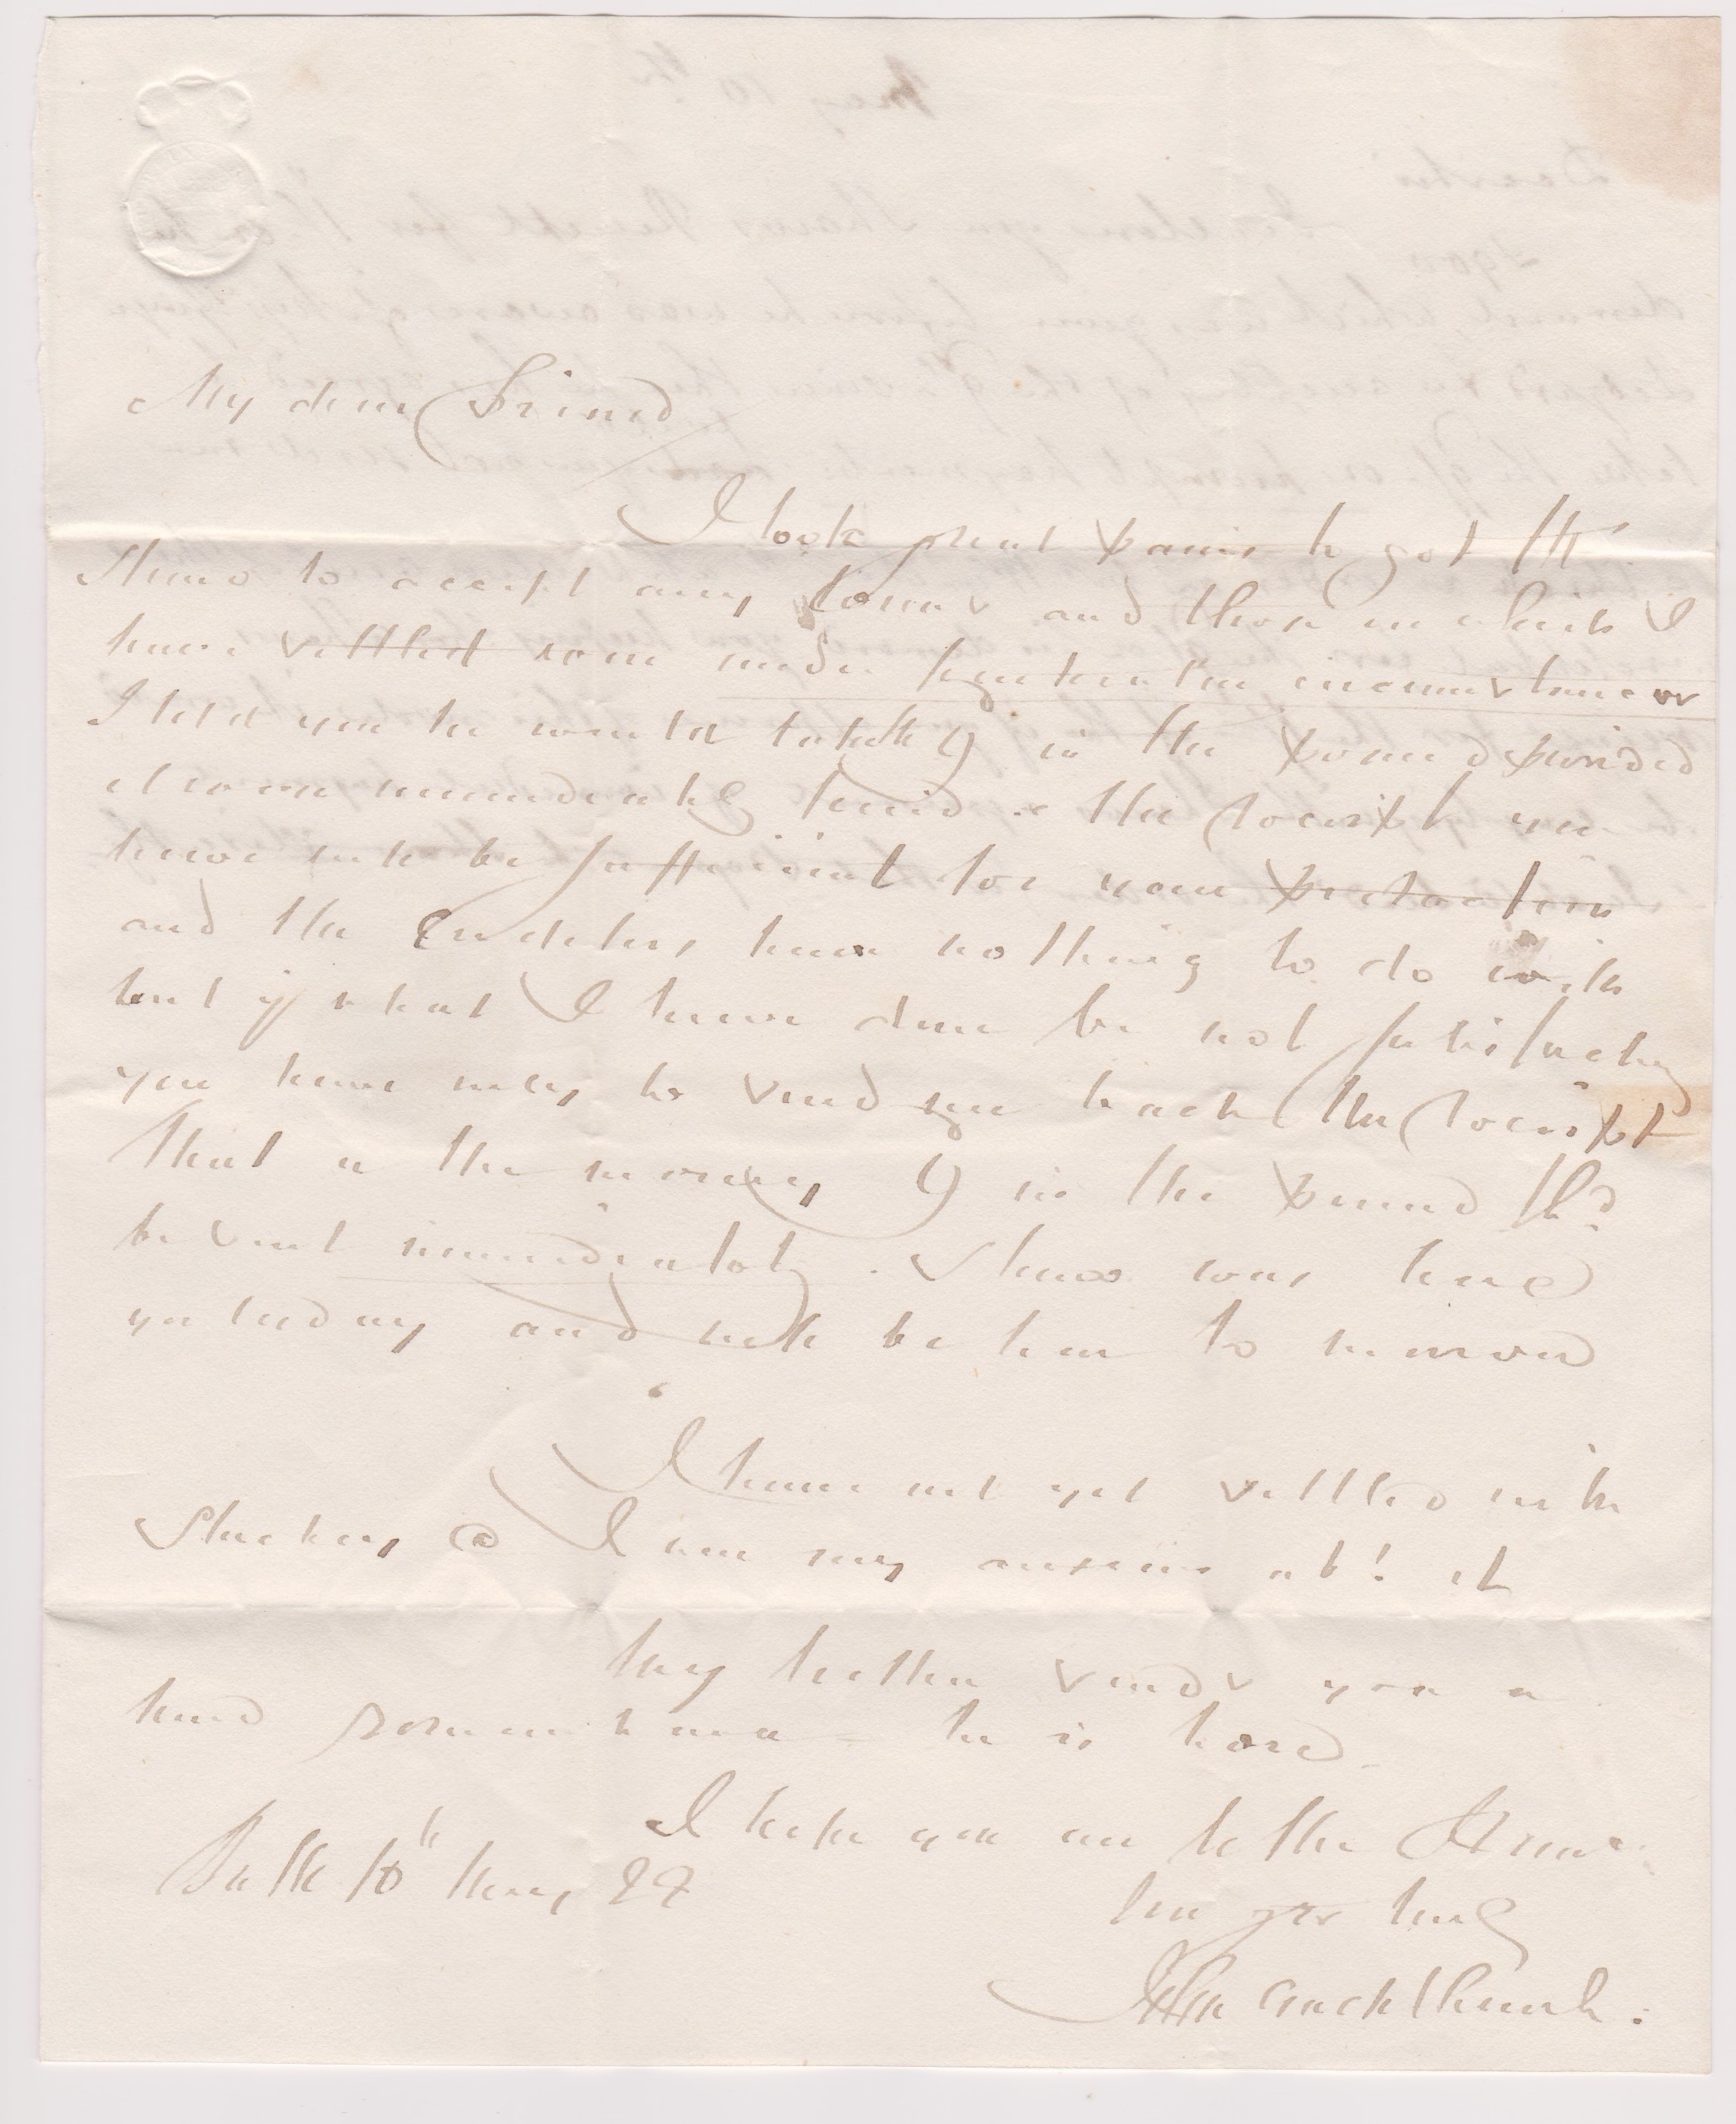 My dear Friend
I took great pains to get Mr
Shaw to accept any terms and those on which I
have settled were under particular circumstances
I told you he would take 9/ in the pound provided
it were immediately paid & the receipt you
have will be sufficient for your protection
and the Creditors have nothing to do with
but if what I have done be not satisfactory
you have only to send me back the receipt
that or the money 9/ in the pound shd
be sent immediately. Shaw was here
yesterday and will be here tomorrow
I have not yet settled with
Stuckey & I am very anxious abt it
My brother sends you a
kind remembrance - he is here.
I hope you are better
Bath 10th May 22
I am yrs truly
John